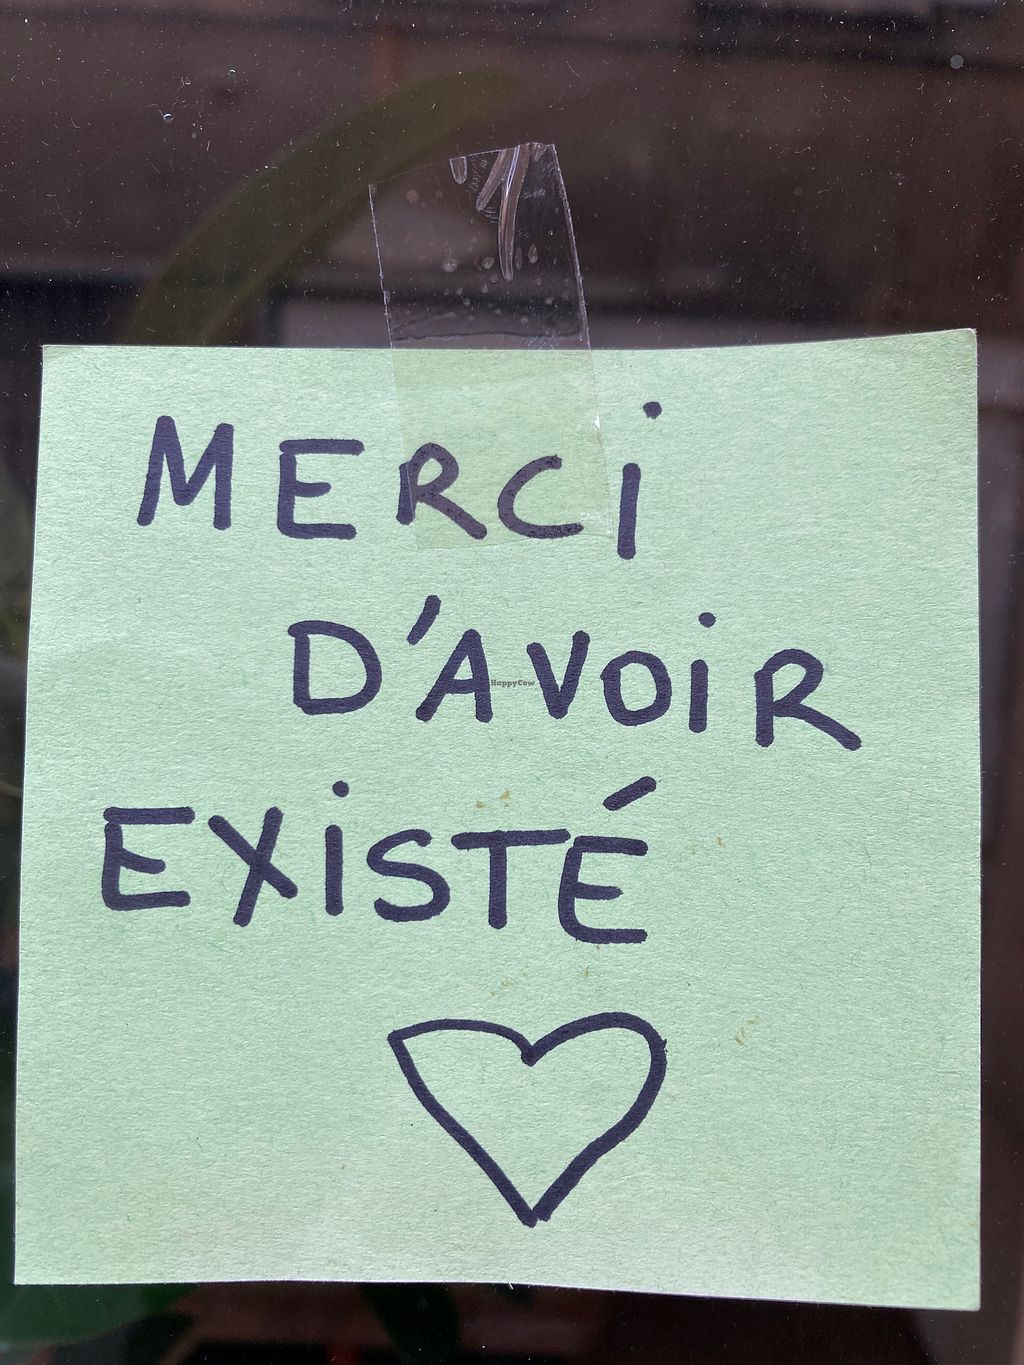 MERCI
D'AVOIR
HappyCow
EXISTÉ